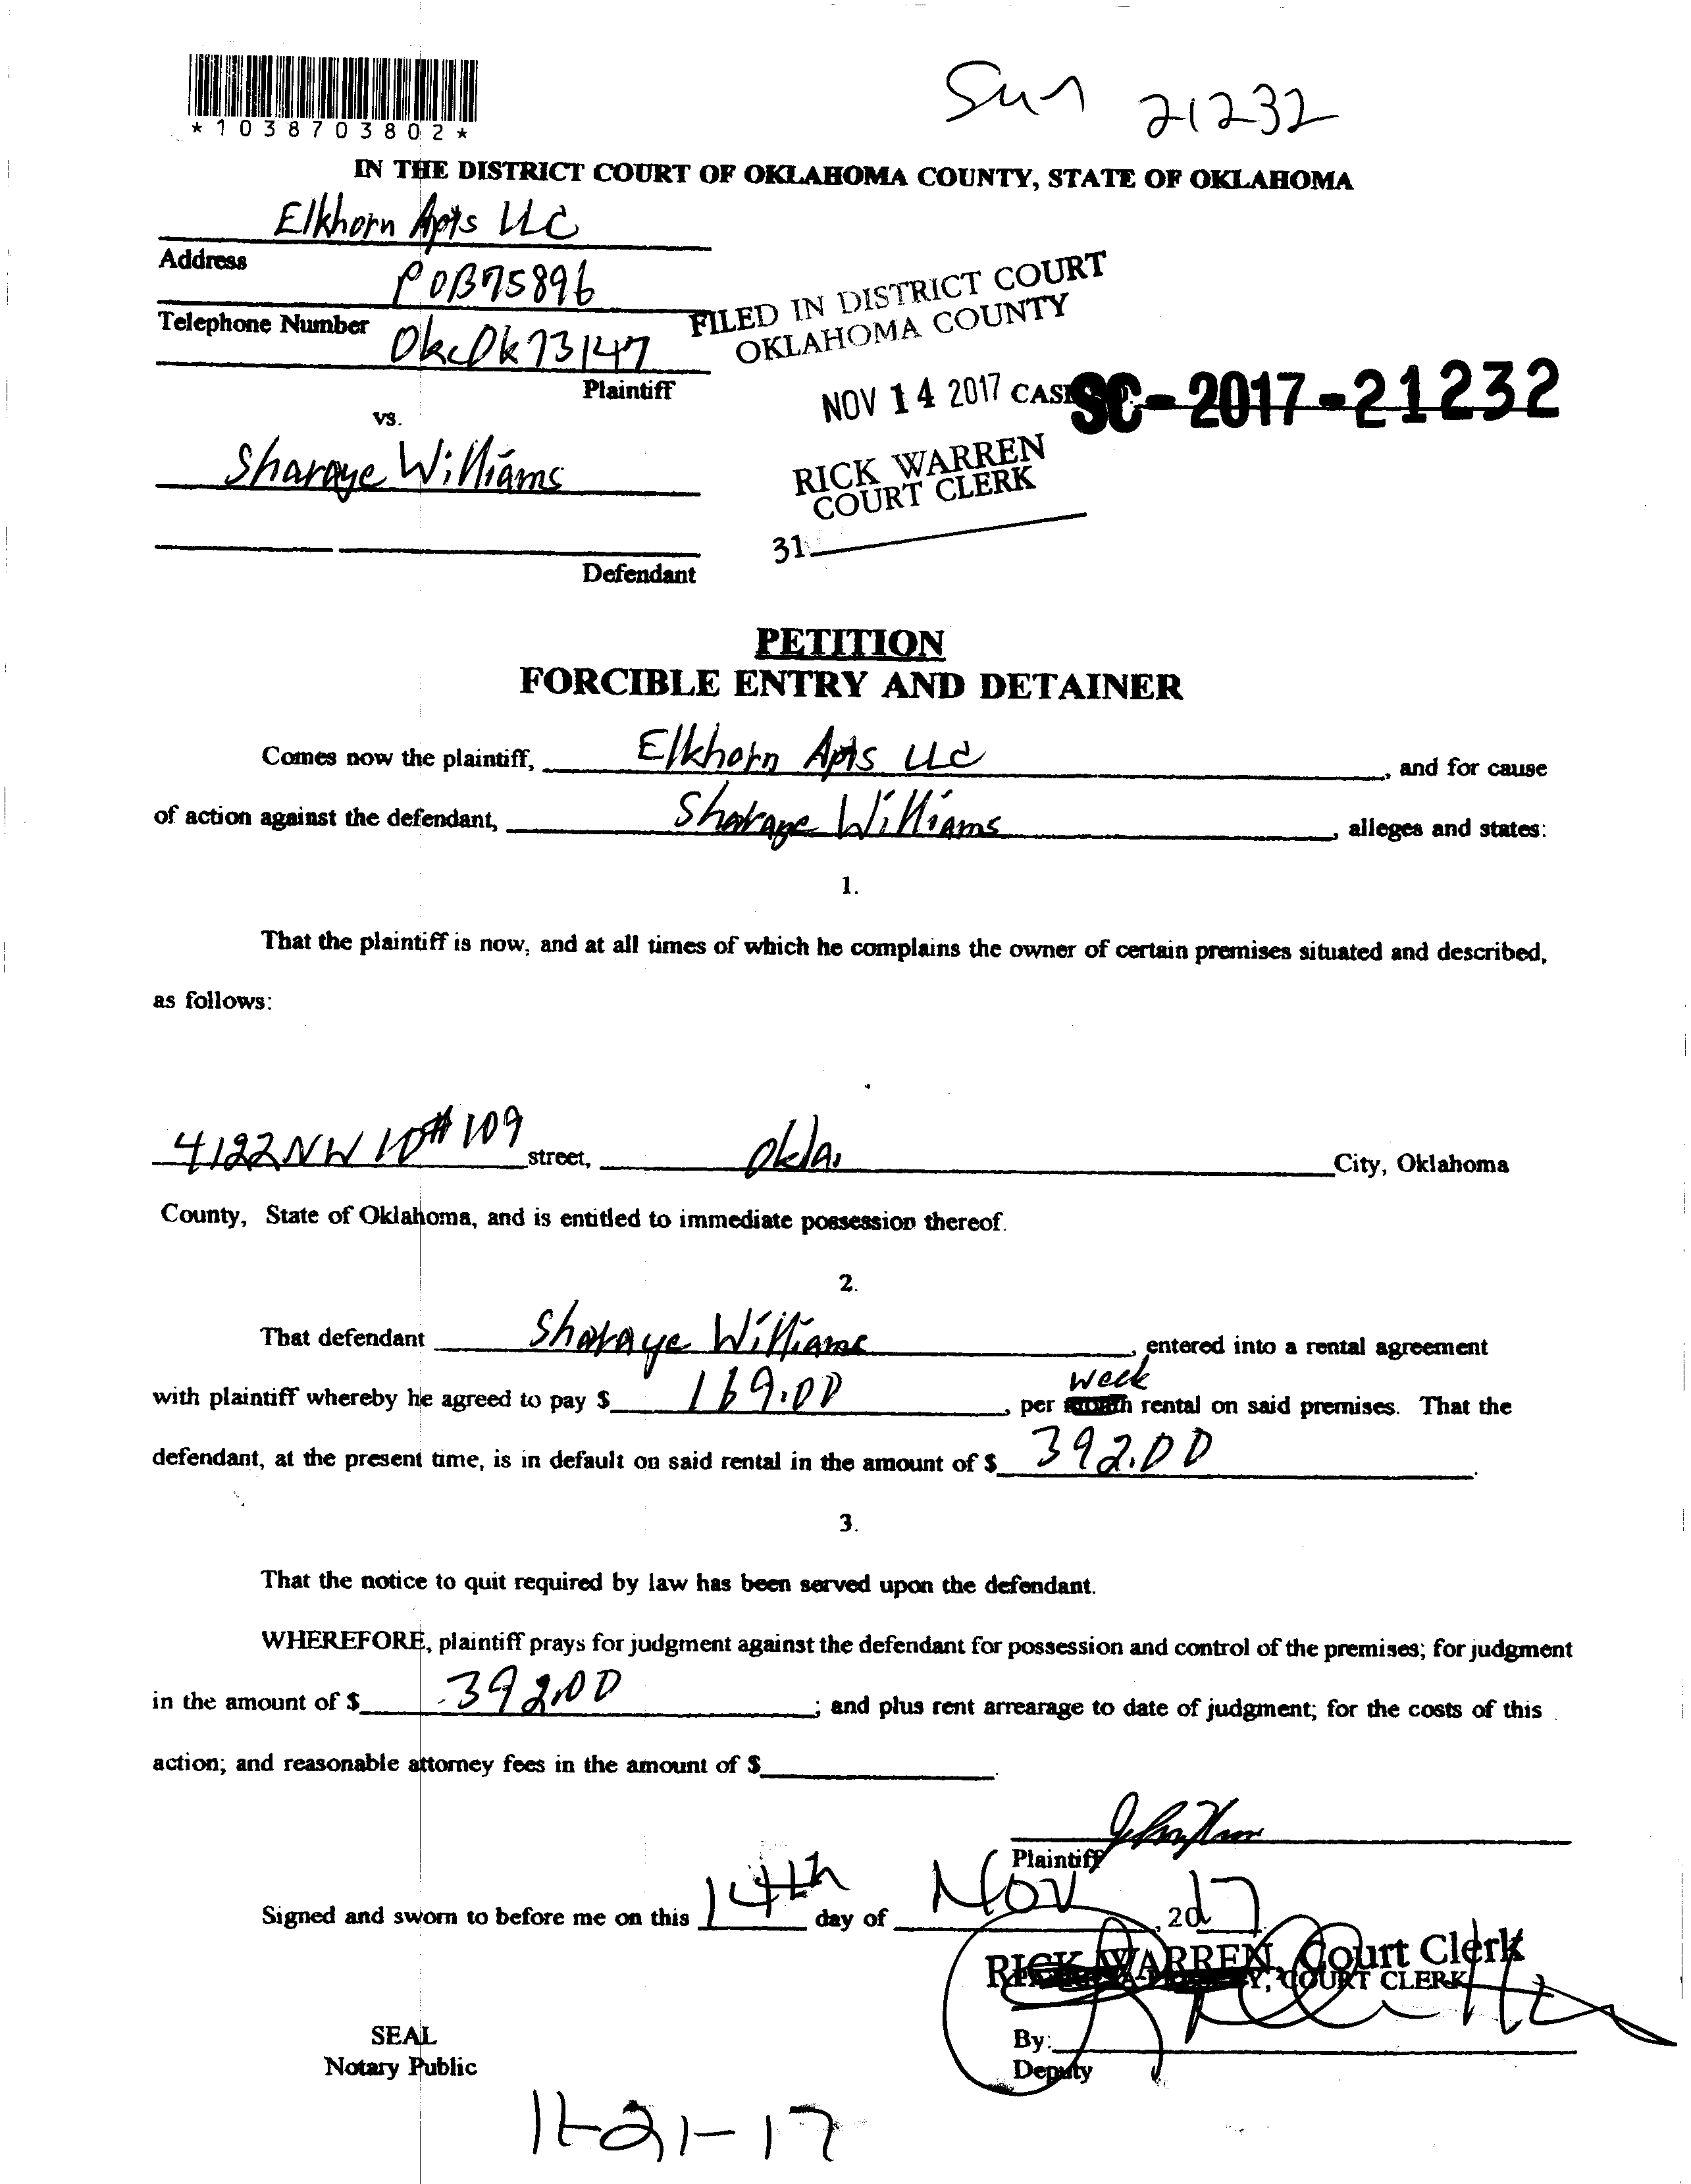 *1038703802*
Sun 21232
IN THE DISTRICT COURT OF OKLAHOMA COUNTY, STATE OF OKLAHOMA
Elkhorn Apts LLC
Address
POB75896
Telephone Number
Okc Ok 73147
Plaintiff
FILED IN DISTRICT COURT
OKLAHOMA COUNTY
NOV 14 2017 CAS SC-2017-21232
RICK WARREN
COURT CLERK
31
vs.
Sharaye Williams
Defendant
PETITION
FORCIBLE ENTRY AND DETAINER
Comes now the plaintiff, Elkhorn Apts LLC, and for cause
of action against the defendant, Sharaye Williams, alleges and states:
1.
That the plaintiff is now, and at all times of which he complains the owner of certain premises situated and described,
as follows:
4122 NW 10 #109 street, Okla. City, Oklahoma
County, State of Oklahoma, and is entitled to immediate possession thereof.
2.
That defendant Sharaye Williams, entered into a rental agreement
week
with plaintiff whereby he agreed to pay $ 169.00, per month rental on said premises. That the
defendant, at the present time, is in default on said rental in the amount of $ 392.00.
3.
That the notice to quit required by law has been served upon the defendant.
WHEREFORE, plaintiff prays for judgment against the defendant for possession and control of the premises; for judgment
in the amount of $ 392.00; and plus rent arrearage to date of judgment; for the costs of this
action; and reasonable attorney fees in the amount of $.
Plaintiff
Signed and sworn to before me on this 14th day of Nov, 2017
RICK WARREN, Court Clerk
COURT CLERK
SEAL
Notary Public
By:
Deputy
11-21-17